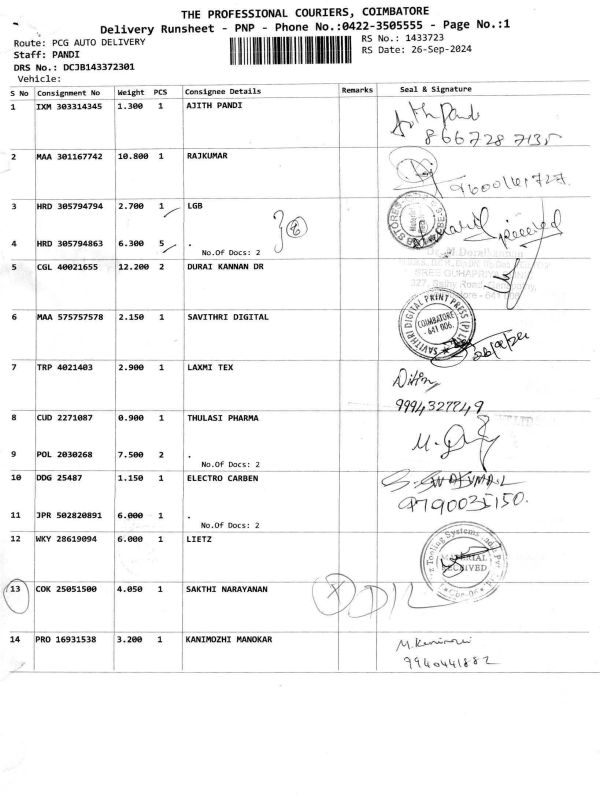 THE PROFESSIONAL COURIERS, COIMBATORE
Delivery Runsheet - PNP - Phone No.:0422-3505555 - Page No.:1
Route: PCG AUTO DELIVERY
RS No.: 1433723
Staff: PANDI
RS Date: 26-Sep-2024
DRS No.: DCJB143372301
Vehicle:
S No Consignment No Weight PCS Consignee Details Remarks Seal & Signature
1 IXM 303314345 1.300 1 AJITH PANDI
866728 7135
2 MAA 301167742 10.800 1 RAJKUMAR
3 HRD 305794794 2.700 1 LGB
received
4 HRD 305794863 6.300 5 .
No.Of Docs: 2
5 CGL 40021655 12.200 2 DURAI KANNAN DR
6 MAA 575757578 2.150 1 SAVITHRI DIGITAL
SAVITHRI DIGITAL PRINT PRESS (P)
COIMBATORE
- 641 006.
7 TRP 4021403 2.900 1 LAXMI TEX
8 CUD 2271087 0.900 1 THULASI PHARMA
9 POL 2030268 7.500 2 .
No.Of Docs: 2
10 DDG 25487 1.150 1 ELECTRO CARBEN
9790035150.
11 JPR 502820891 6.000 1 .
No.Of Docs: 2
12 WKY 28619094 6.000 1 LIETZ
Tooling Systems
MATERIAL
RECEIVED
13 COK 25051500 4.050 1 SAKTHI NARAYANAN
14 PRO 16931538 3.200 1 KANIMOZHI MANOKAR
9940441882